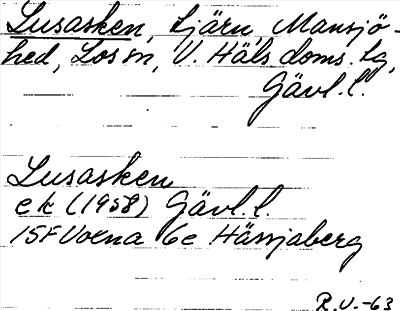 Lusasken, tjärn, Mansjö-
hed, Los sn, V. Häls doms. lg,
Gävl. l.
Lusasken
ek (1958) Gävl. l.
15F Voxna 6c Hässjaberg
R.U.-63